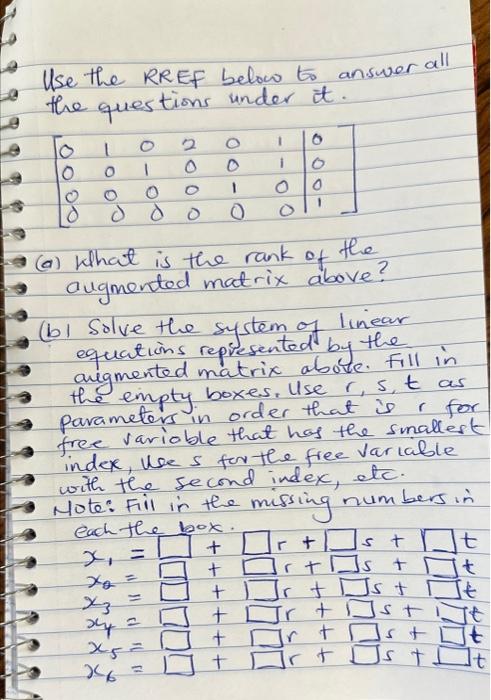 Use the RREF below to answer all
the questions under it.
0 1 0 2 0 1 | 0
0 0 1 0 0 1 | 0
0 0 0 0 1 0 | 0
0 0 0 0 0 0 | 1
(a) What is the rank of the
augmented matrix above?
(b) Solve the system of linear
equations represented by the
augmented matrix above. Fill in
the empty boxes. Use r, s, t as
parameters in order that is r for
free variable that has the smallest
index, use s for the free variable
with the second index, etc.
Note: Fill in the missing numbers in
each the box.
x₁ = □ + □r + □s + □t
x₂ = □ + □r + □s + □t
x₃ = □ + □r + □s + □t
x₄ = □ + □r + □s + □t
x₅ = □ + □r + □s + □t
x₆ = □ + □r + □s + □t